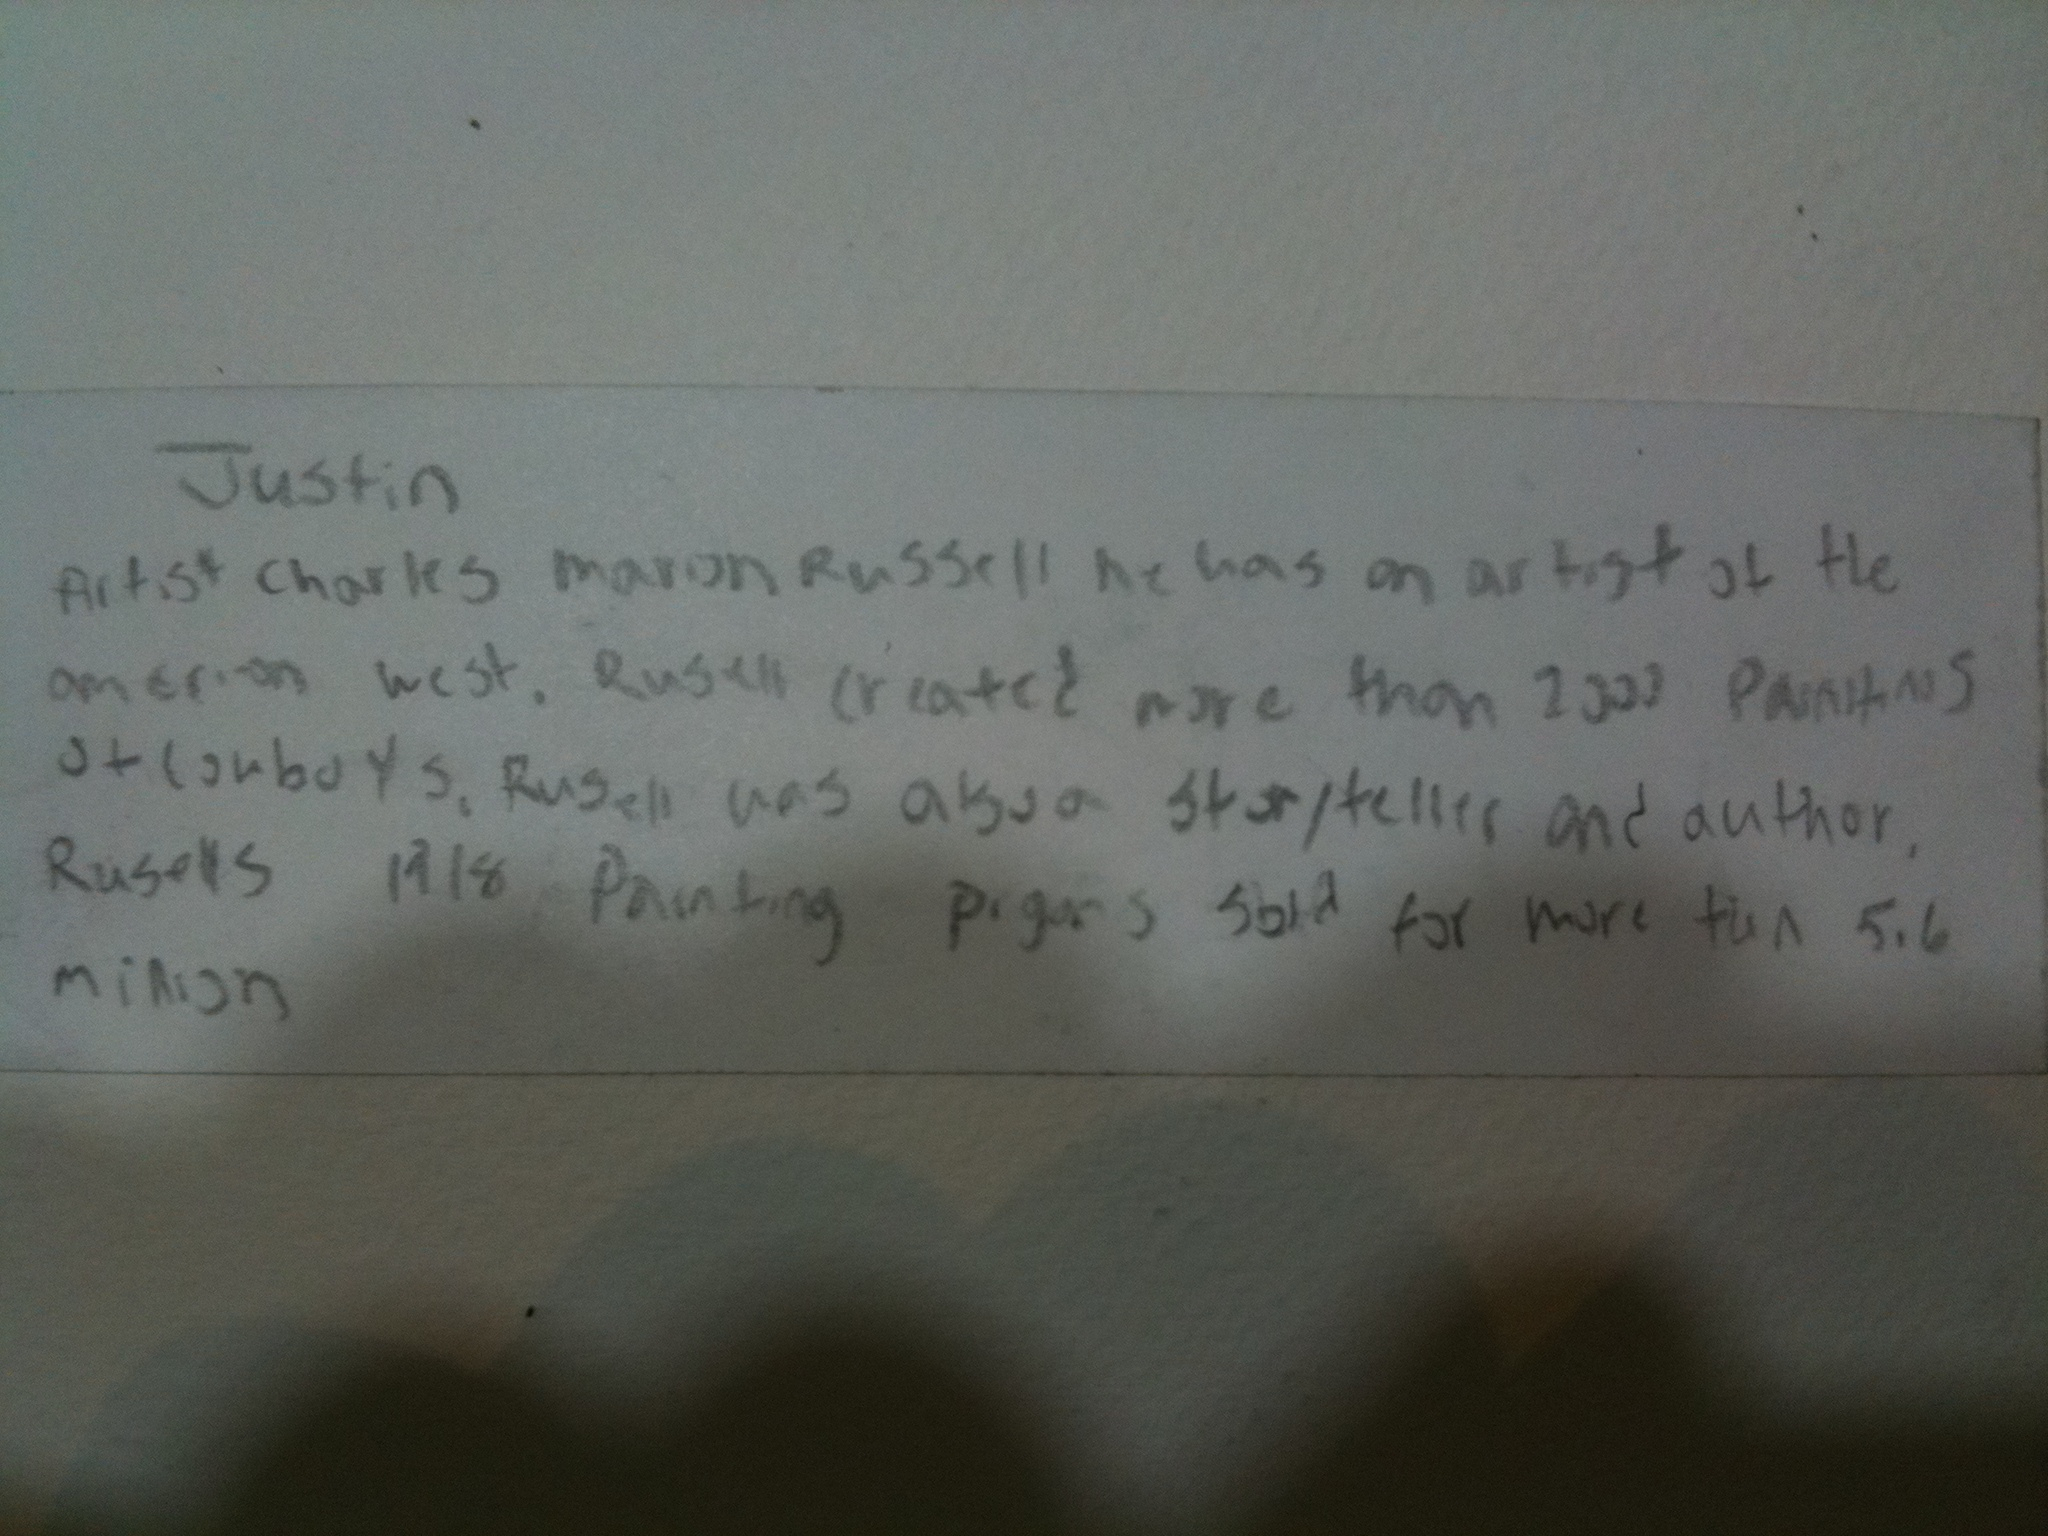 Justin
Artist Charles marion Russell he was an artist of the
american west. Rusell created more than 2000 Paintings
of cowboys. Rusell was also a storyteller and author.
Rusells 1918 Painting pigans sold for more tian 5.6
million